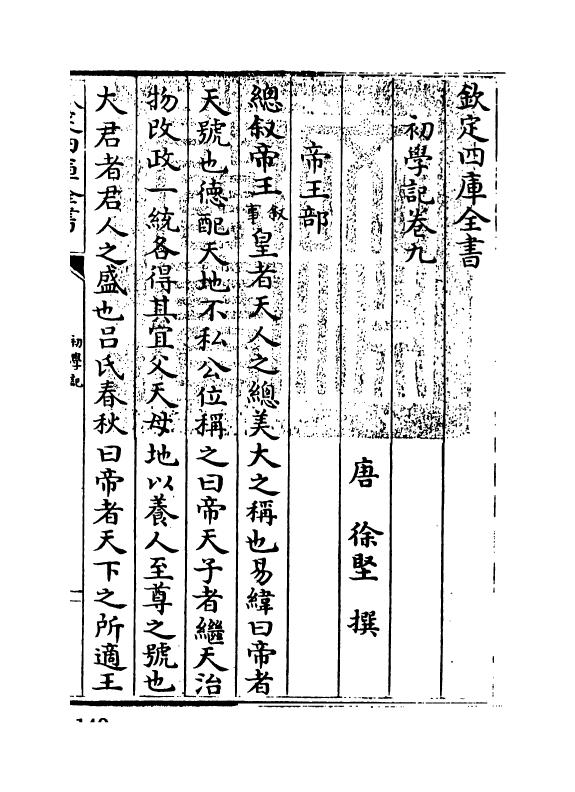 欽定四庫全書
初學記卷九
唐 徐堅 撰
帝王部
總叙帝王叙事皇者天人之總美大之稱也易緯曰帝者
天號也德配天地不私公位稱之曰帝天子者繼天治
物改政一統各得其宜父天母地以養人至尊之號也
大君者君人之盛也吕氏春秋曰帝者天下之所適王
初學記